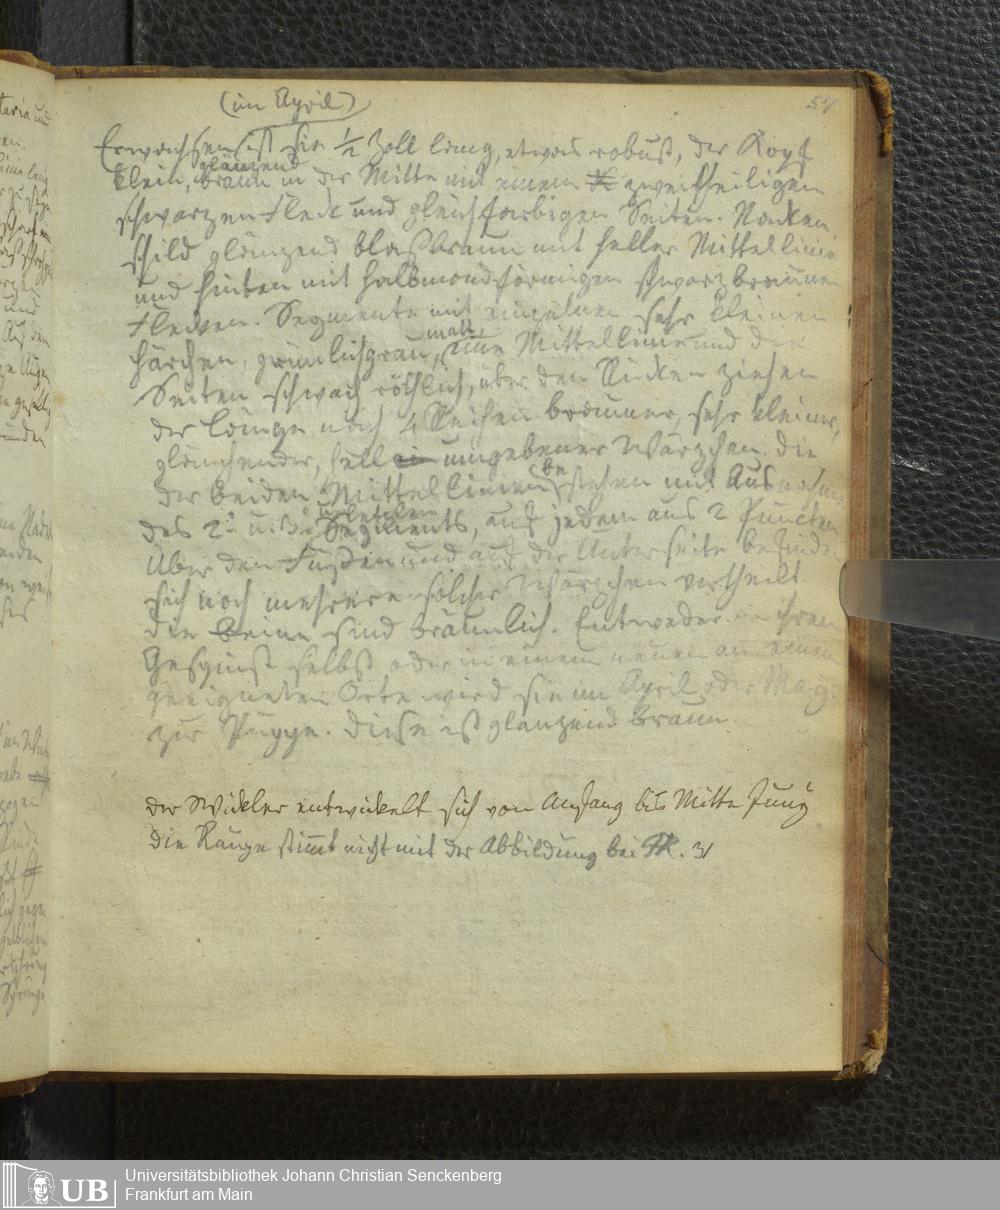 57
(im April)
Erwachsen ist sie 1/2 Zoll lang, etwas robust, der Kopf
klein, glänzend braun in der Mitte mit einem zweitheiligen
schwarzen Fleck und gleichfarbigen Seiten. Nacken
schild glänzend blaßbraun mit heller Mittellinie
und hinten mit halbmondförmigen schwarzbraunen
Flecken. Segmente mit einzelnen sehr kleinen
Härchen, grünlichgrau, matte eine Mittellinie und die
Seiten schwach röthlich, über den Rücken ziehen
der Länge nach 4 Reihen brauner, sehr kleiner,
glänzender, hell umgebener Wärzchen. Die
der beiden Mittellinien bestehen mit Ausnahme
des 2t u. 3t u. letzten Segments, auf jedem aus 2 Puncten
Über den Füßen und auf der Unterseite befinden
sich noch mehrere solcher Wärzchen vertheilt
die Beine sind bräunlich. Entweder in ihrem
Gespinst selbst oder in einem neuen an einem
geeigneten Orte wird sie im April oder May
zur Puppe. Diese ist glänzend braun.
der Wickler entwickelt sich von Anfang bis Mitte Juny
die Raupe stimmt nicht mit der Abbildung bei
Universitätsbibliothek Johann Christian Senckenberg
Frankfurt am Main
UB